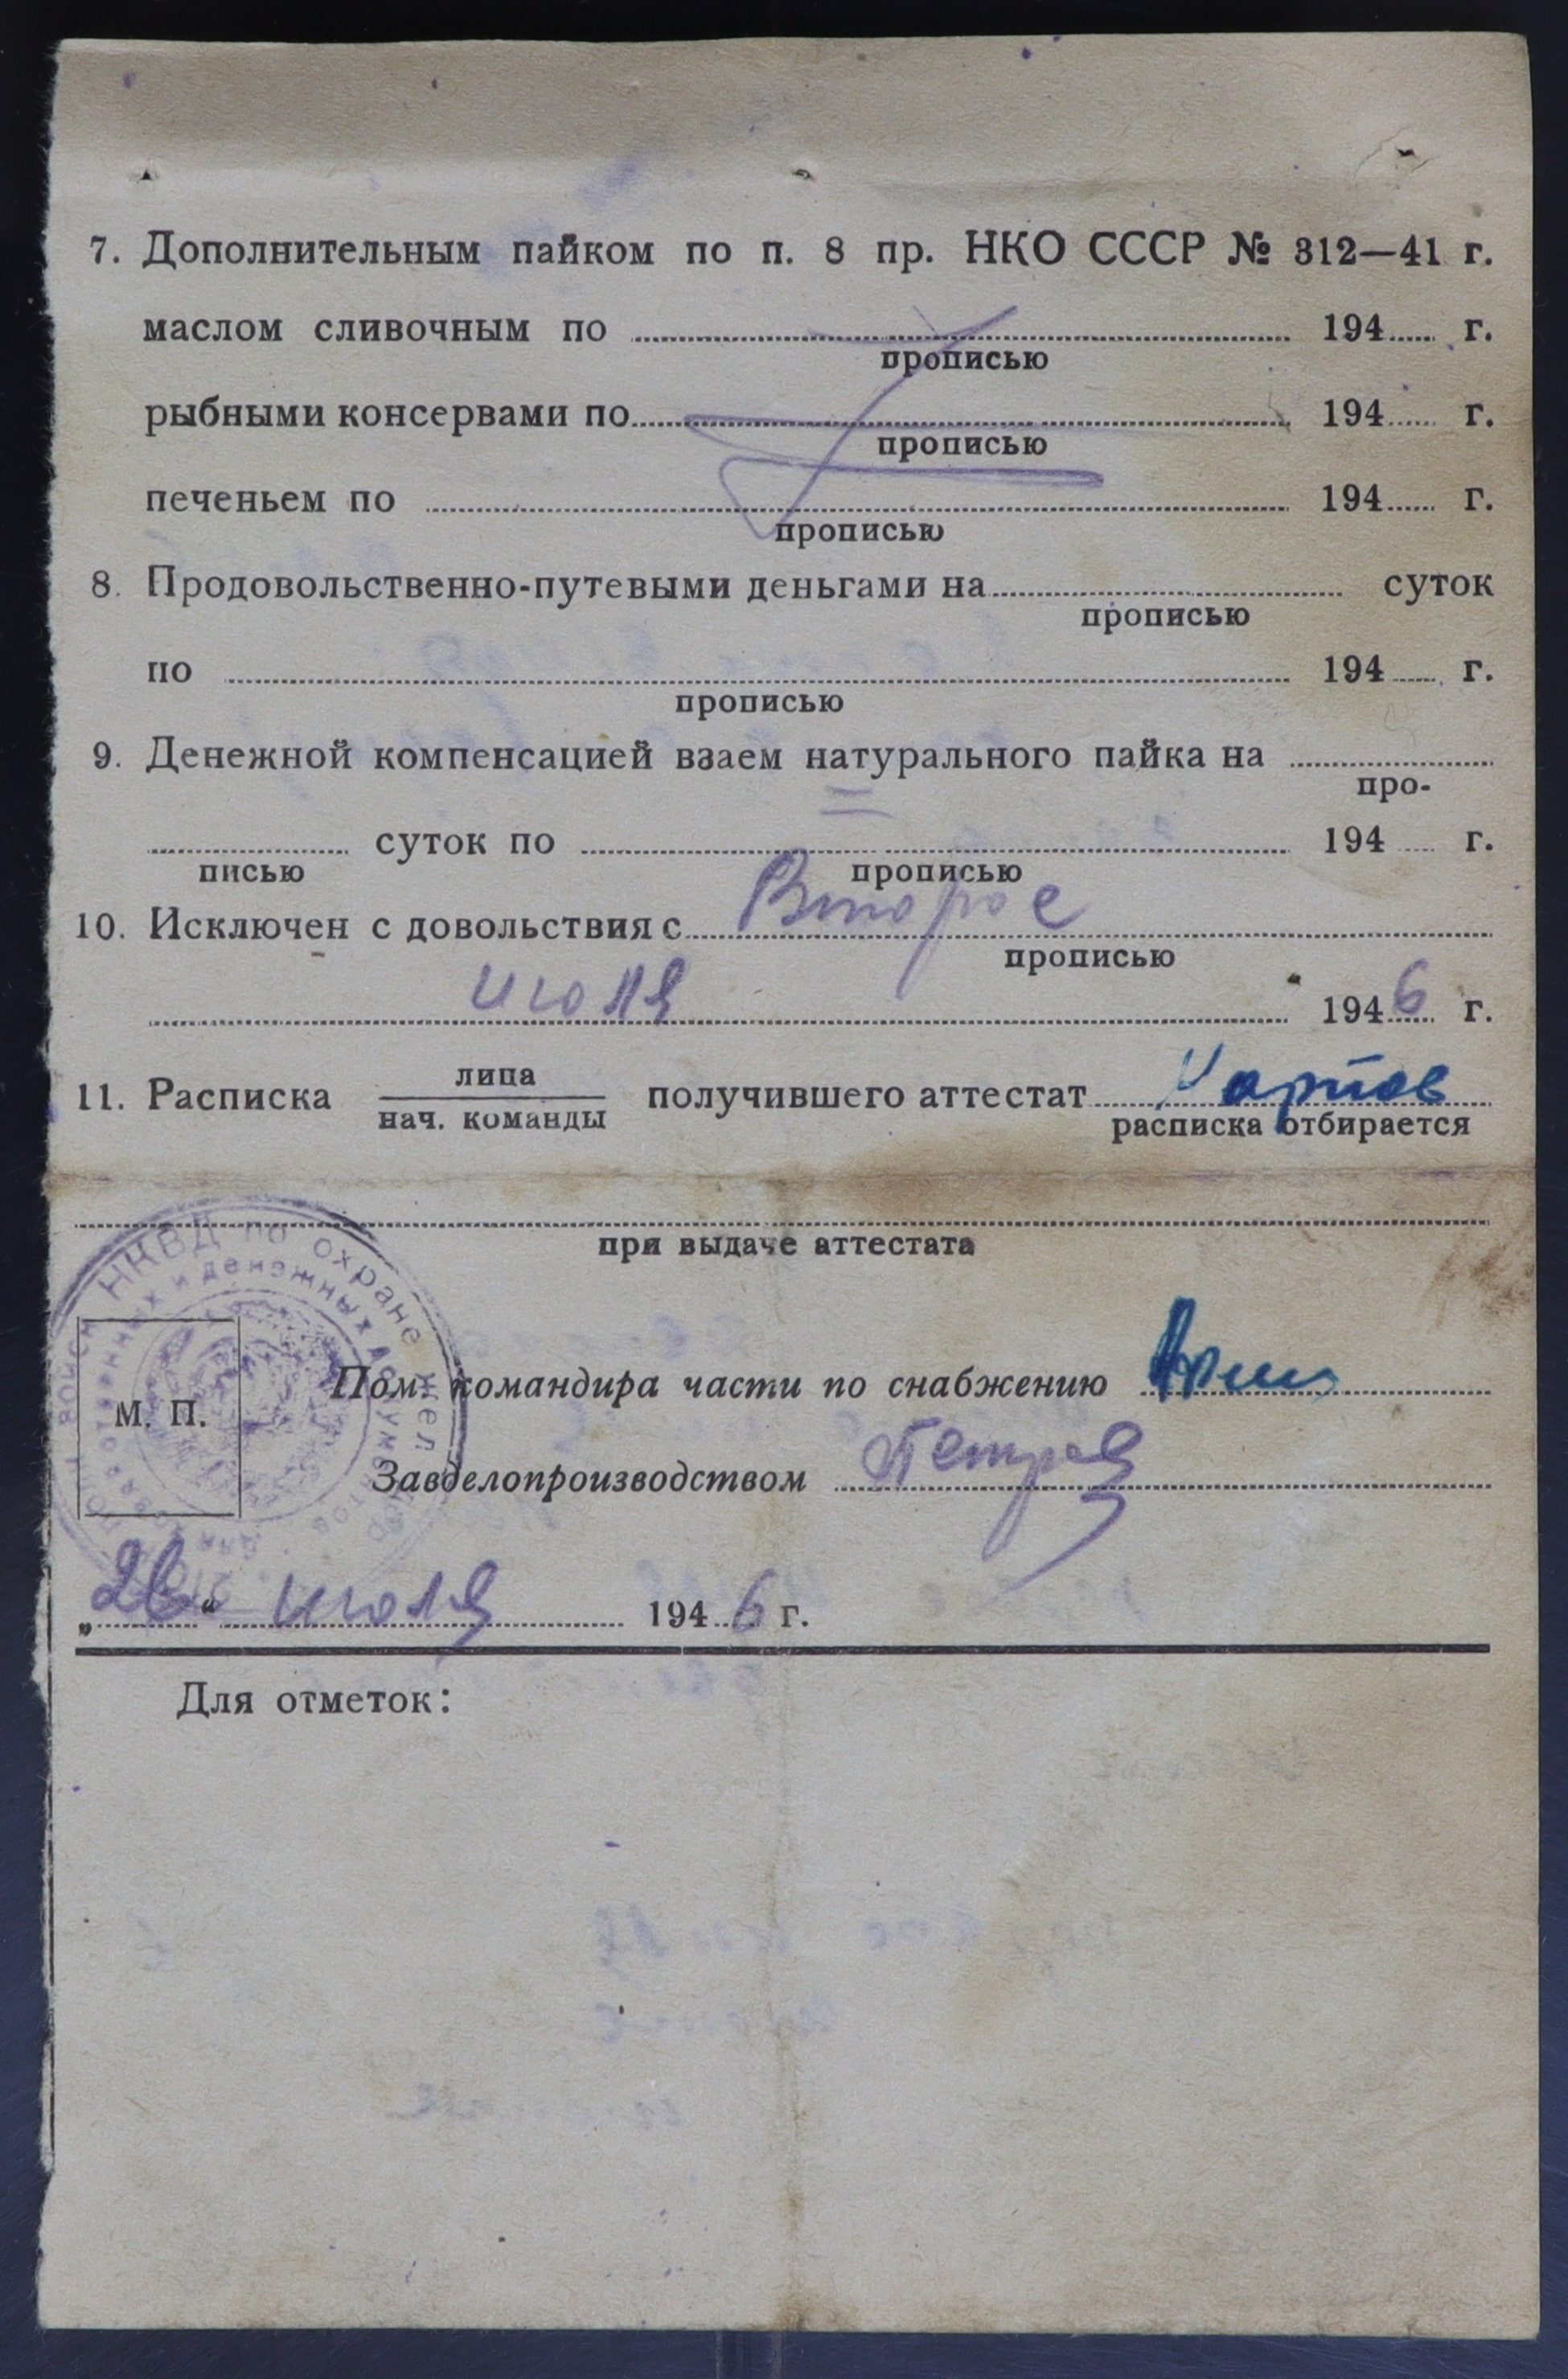 7. Дополнительным пайком по п. 8 пр. НКО СССР № 312—41 г.
маслом сливочным по 194 г.
прописью
рыбными консервами по 194 г.
прописью
печеньем по 194 г.
прописью
8. Продовольственно-путевыми деньгами на суток
прописью
по 194 г.
прописью
9. Денежной компенсацией взаем натурального пайка на
про-
суток по 194 г.
писью прописью
10. Исключен с довольствия с Второе
прописью
июля 1946 г.
11. Расписка лица получившего аттестат
нач. команды расписка отбирается
при выдаче аттестата
войск НКВД по охране жел
и денежных
М. П.
Пом. командира части по снабжению
Завделопроизводством
„ “ июля 1946 г.
Для отметок: